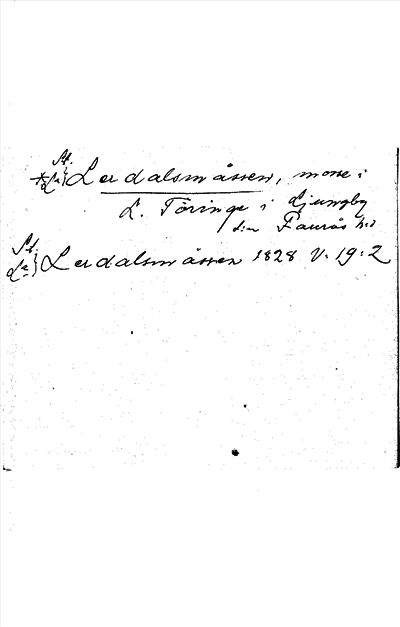 St.
* La } Lerdalsmåssen, mosse i
L. Töringe i Ljungby
s:n Faurås h:d
St.
La } Lerdalsmåssen 1828 V. 19:2